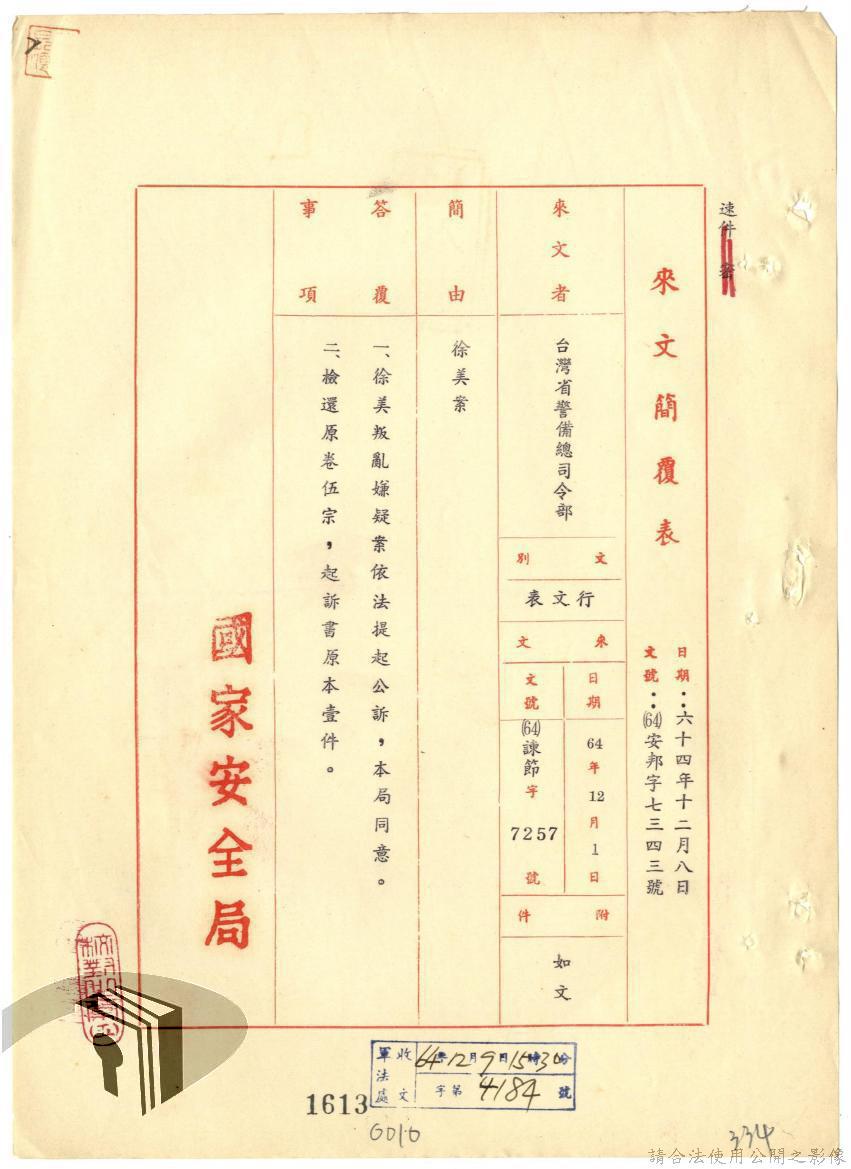 速件
密
來文簡覆表
日期：六十四年十二月八日
文號：(64)安邦字七三四三號
來文者
台灣省警備總司令部
文別
行文表
來文
日期
64年12月1日
文號
(64)諫節字7257號
附件
如文
簡由
徐美案
答覆事項
一、徐美叛亂嫌疑案依法提起公訴，本局同意。
二、檢還原卷伍宗，起訴書原本壹件。
國家安全局
軍法處
收文
64年12月9日15時30分
字第4184號
1613
G010
334
請合法使用公開之影像